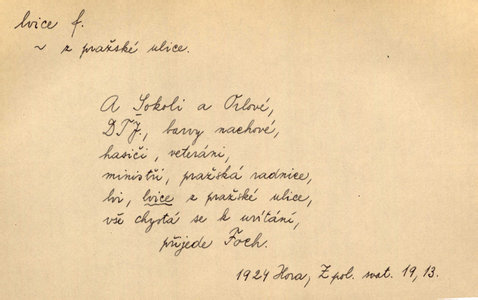 lvice f.
~ z pražské ulice.
A Sokoli a Orlové,
DTJ, barvy nachové,
hasiči, veteráni,
ministři, pražská radnice,
lvi, lvice z pražské ulice,
vše chystá se k uvítání,
přijede Foch.
1924 Hora, Z pol. svat. 19, 13.